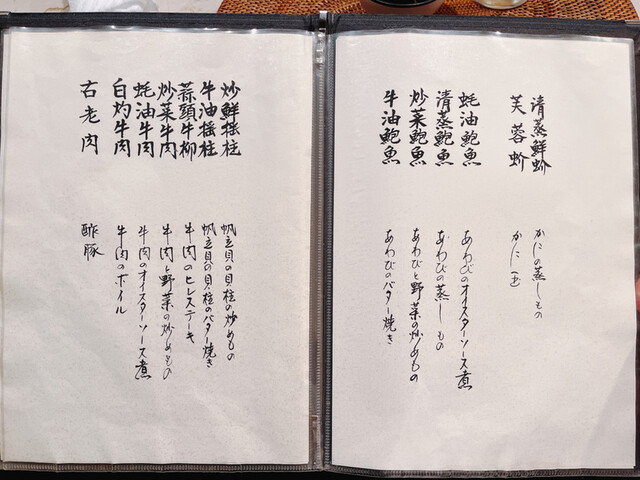 清蒸鮮蚧
芙蓉蚧
蚝油鮑魚
清蒸鮑魚
炒菜鮑魚
牛油鮑魚
かにの蒸しもの
かに玉
あわびのオイスターソース煮
あわびの蒸しもの
あわびと野菜の炒めもの
あわびのバター焼き
炒鮮瑤柱
牛油瑤柱
蒜頭牛柳
炒菜牛肉
蚝油牛肉
白灼牛肉
古老肉
帆立貝の貝柱の炒めもの
帆立貝の貝柱のバター焼き
牛肉のヒレステーキ
牛肉と野菜の炒めもの
牛肉のオイスターソース煮
牛肉のボイル
酢豚